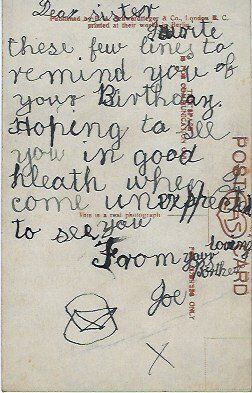 Dear sister
Published by E. A. Schwerdtfeger & Co., London E. C.
printed at their works in Berlin.
I write
these few lines to
remind you of
your Birthday.
Hoping to see
you in good
kleath when
come unexpected
This is a real photograph
to see you
From your loving
Borther
Joe
X
POSTCARD